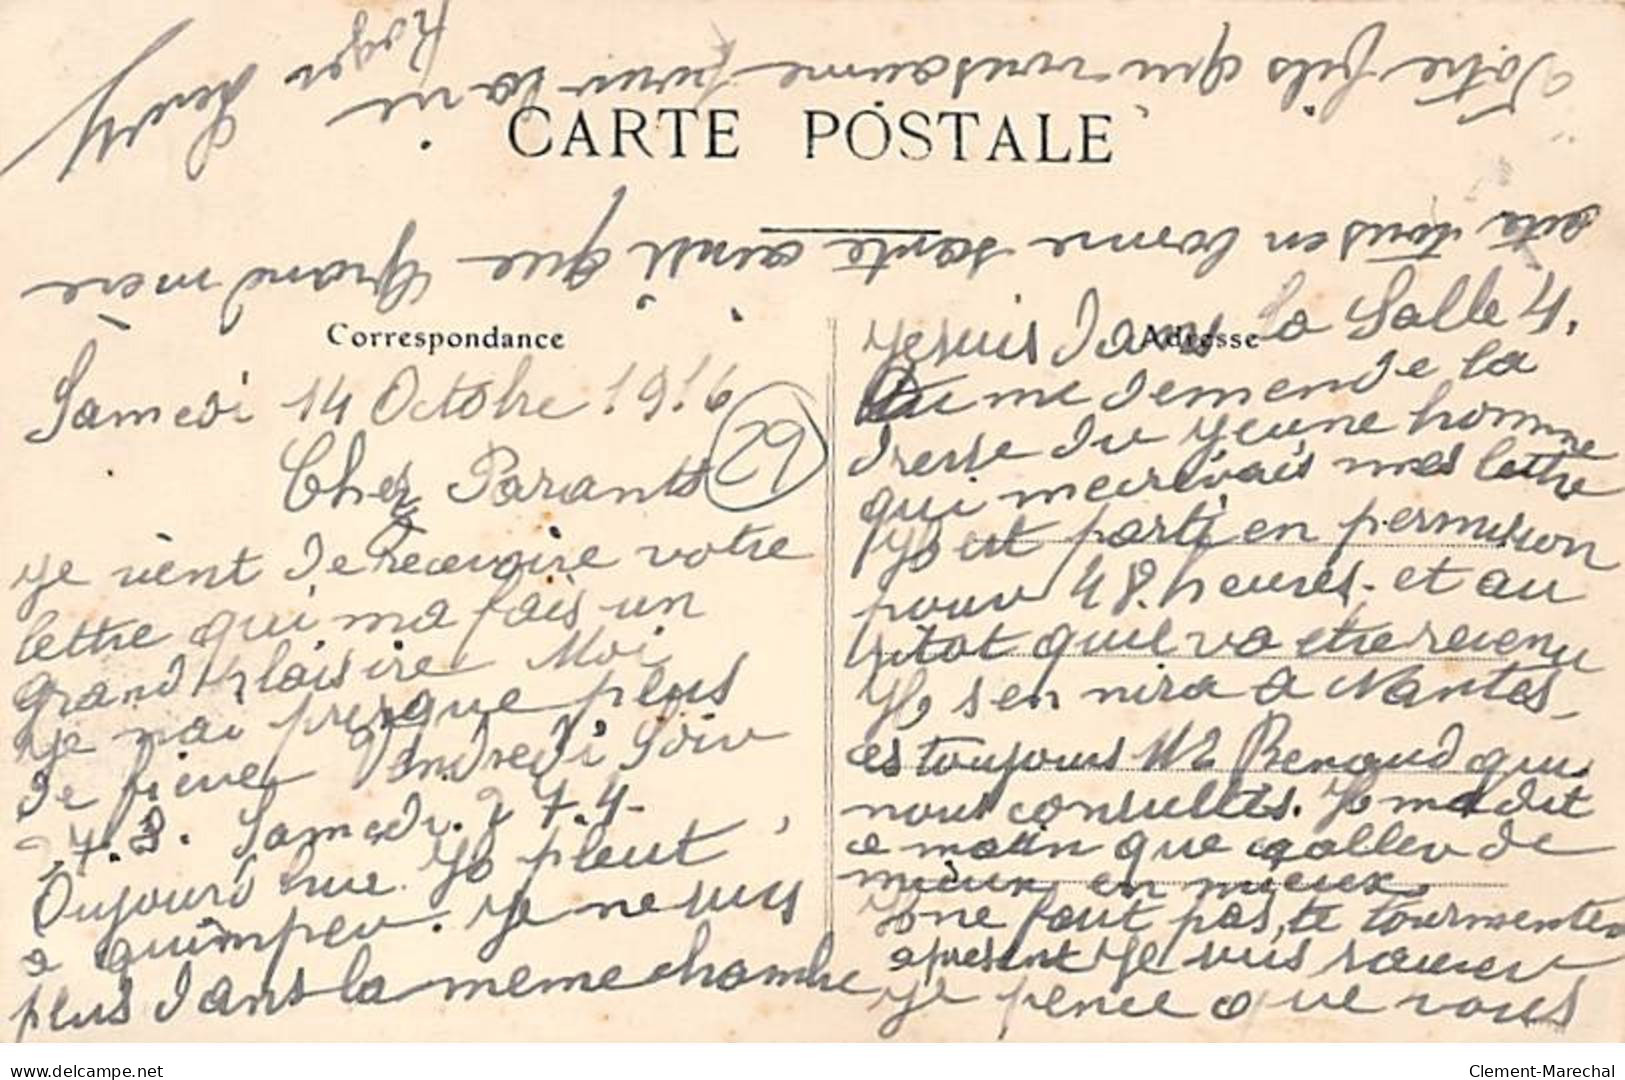 CARTE POSTALE
Correspondance
Adresse
Samedi 14 Octobre 1916
29
Cher Parants
Je vient de recevoire votre
lettre qui ma fais un
grand plaisire Moi
je nai presque plus
de fievre Vendredi Soir
37.3. Samedi. 37.4.
Oujourd hue. Yl pleut
a quimper. Je ne suis
plus dans la meme chambre
Je suis dans la Salle 4.
Tu me demende la
dresse du jeune homme
qui mecrivais mes lettre
Yl est parti en permision
pour 48. heures. et au
sitot quil va etre revenu
Yl sen nira a Nantes
ces toujours Mr Renaud qui
nous consultes. Yl ma dit
ce matin que cq aller de
mieux en mieux.
Yl ne faut pas te tourmenter
apresent Je suis sauver
Je pence que vous
ete tous en bonne sante ainsi que Grand mère
Votre fils qui vous aime pour la vie
Roger